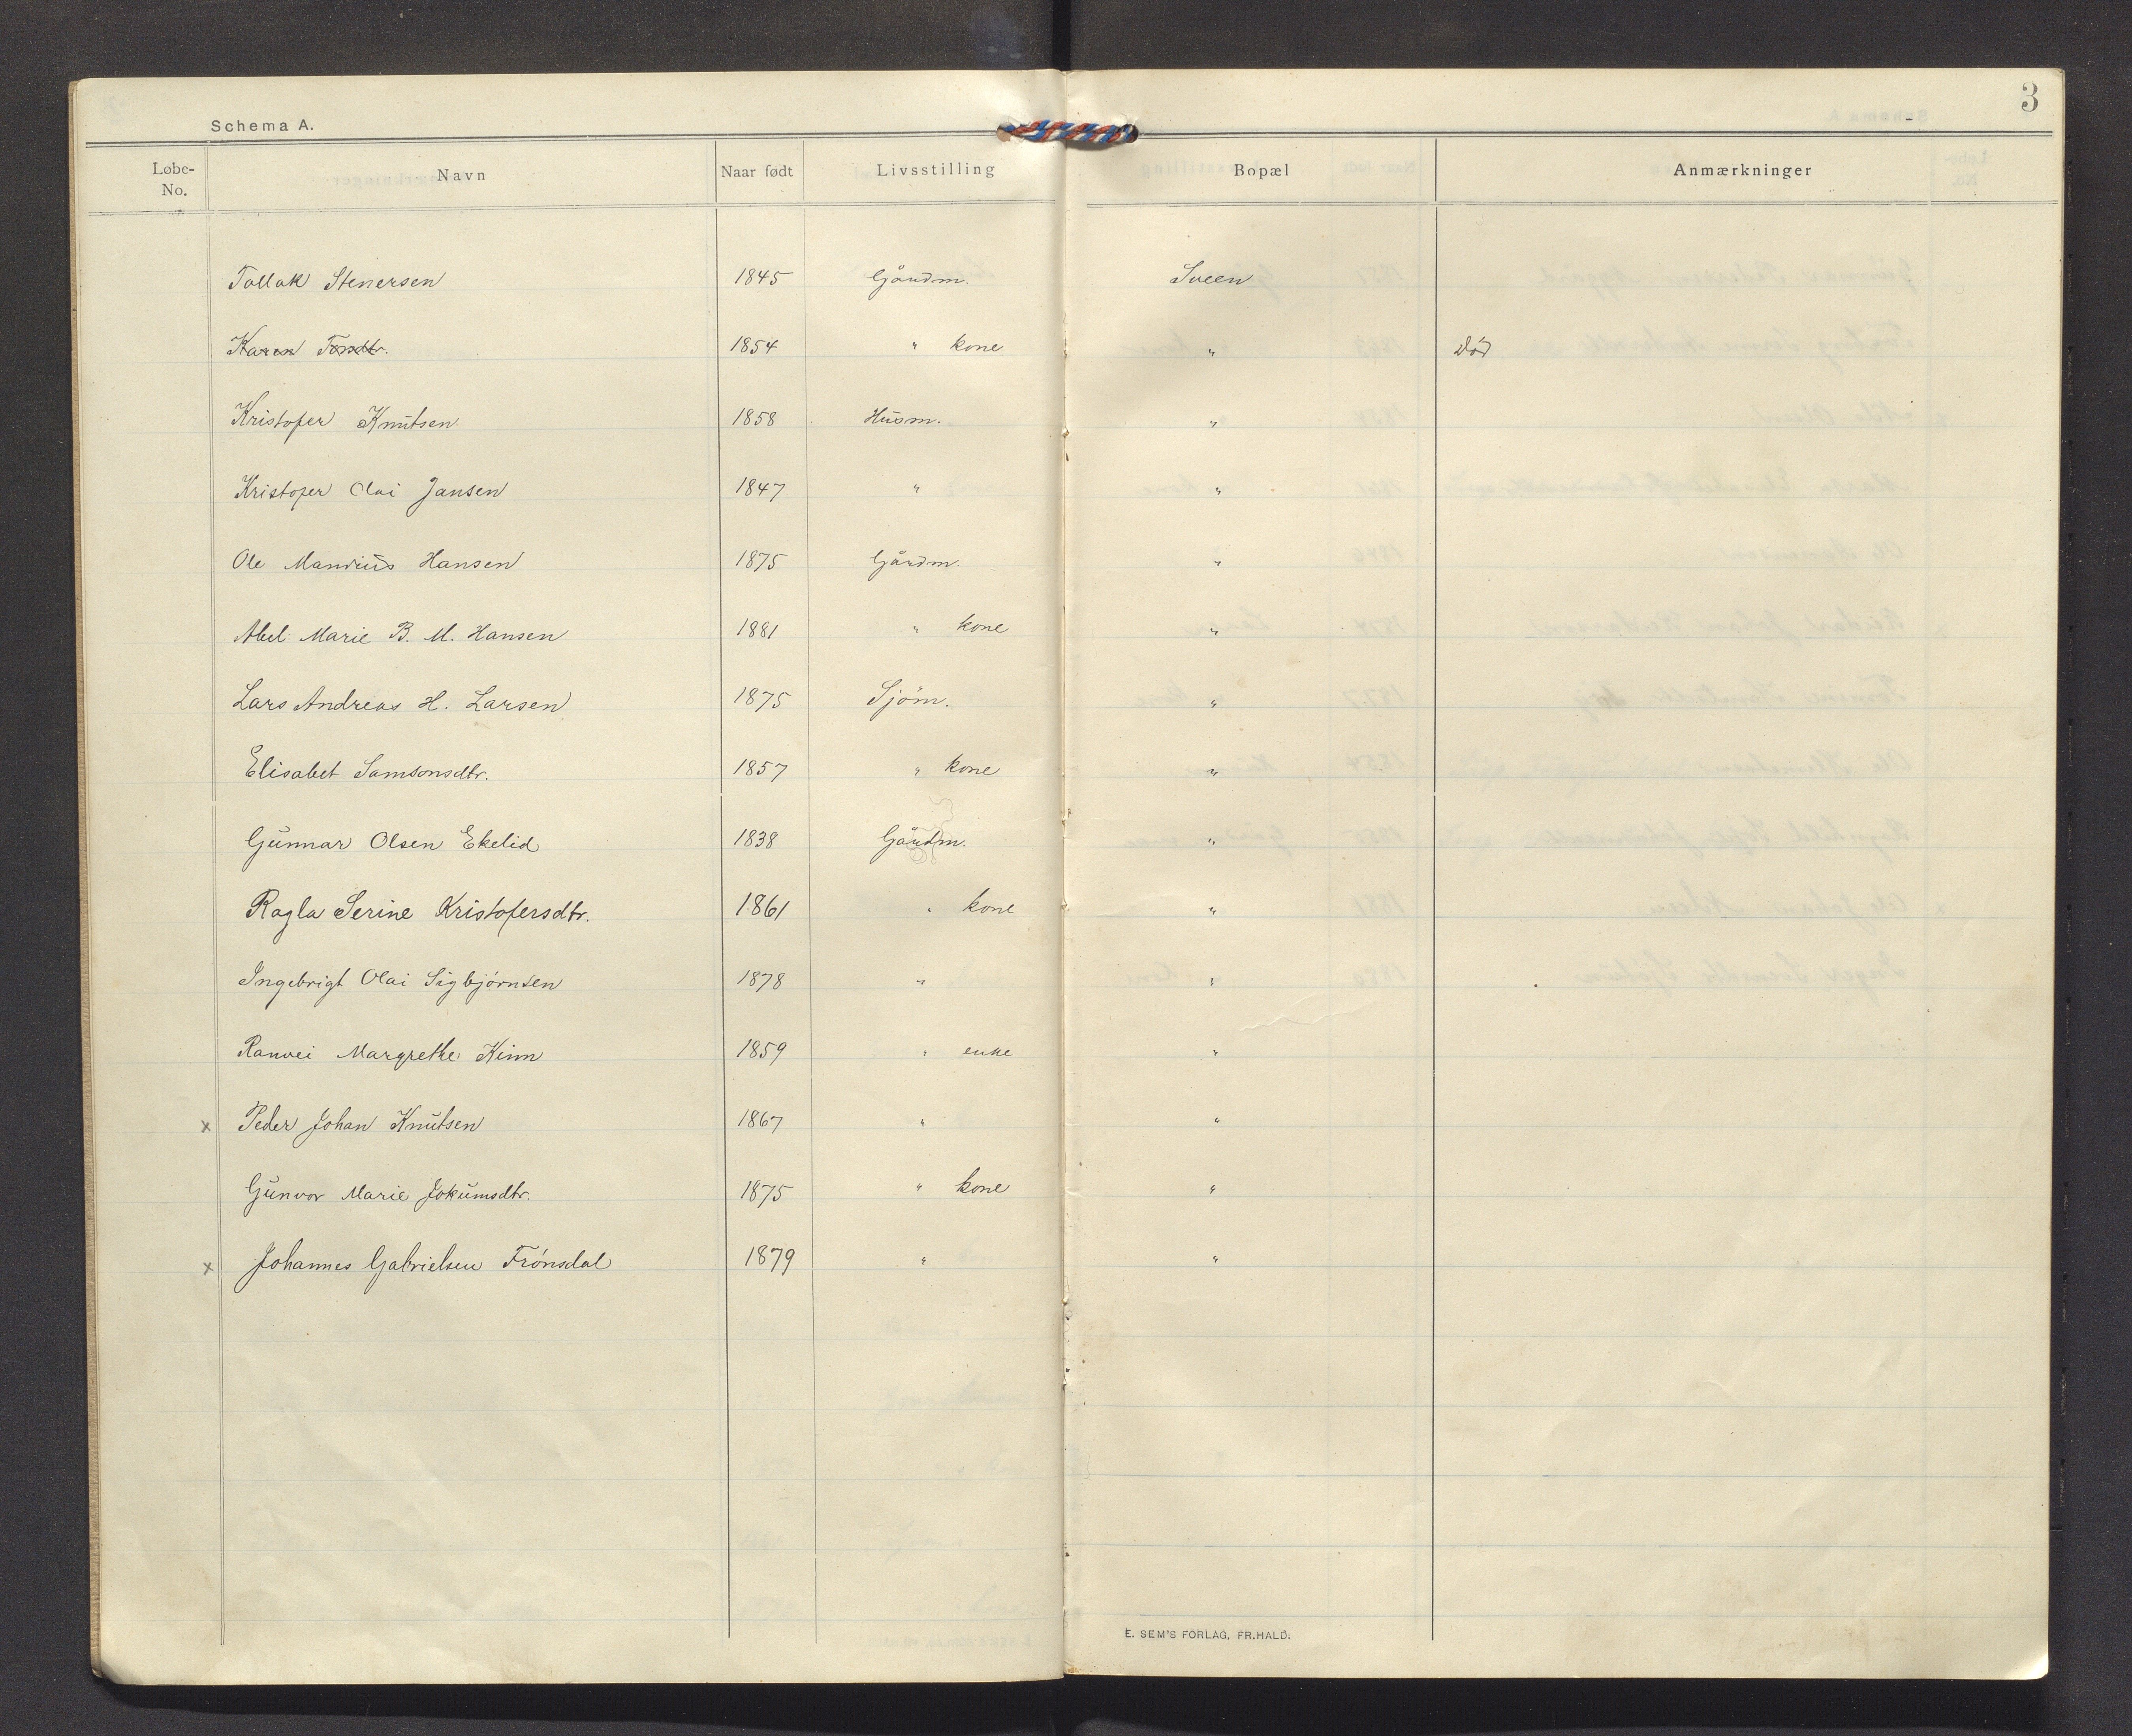 3
Schema A.
Løbe-No. Navn Naar født Livsstilling Bopæl Anmærkninger
Tallak Stenersen 1845 Gårdm. Sveen
Karen Tørresdtr. 1854 " kone " død
Kristofer Knutsen 1858 Husm. "
Kristofer Olai Jansen 1847 " "
Ole Mandius Hansen 1875 Gårdm. "
Abel Marie B. M. Hansen 1881 " kone "
Lars Andreas H. Larsen 1875 Sjøm. "
Elisabet Samsonsdtr. 1857 " kone "
Gunnar Olsen Ekelid 1838 Gårdm. "
Ragla Serine Kristofersdtr. 1861 " kone "
Ingebrigt Olai Sigbjørnsen 1878 " "
Ranvei Margrethe Kinn 1859 " enke "
x Peder Johan Knutsen 1867 " "
Gunvor Marie Jokumsdtr. 1875 " kone "
x Johannes Gabrielsen Frønsdal 1879 " "
E. SEM'S FORLAG, FR.HALD.